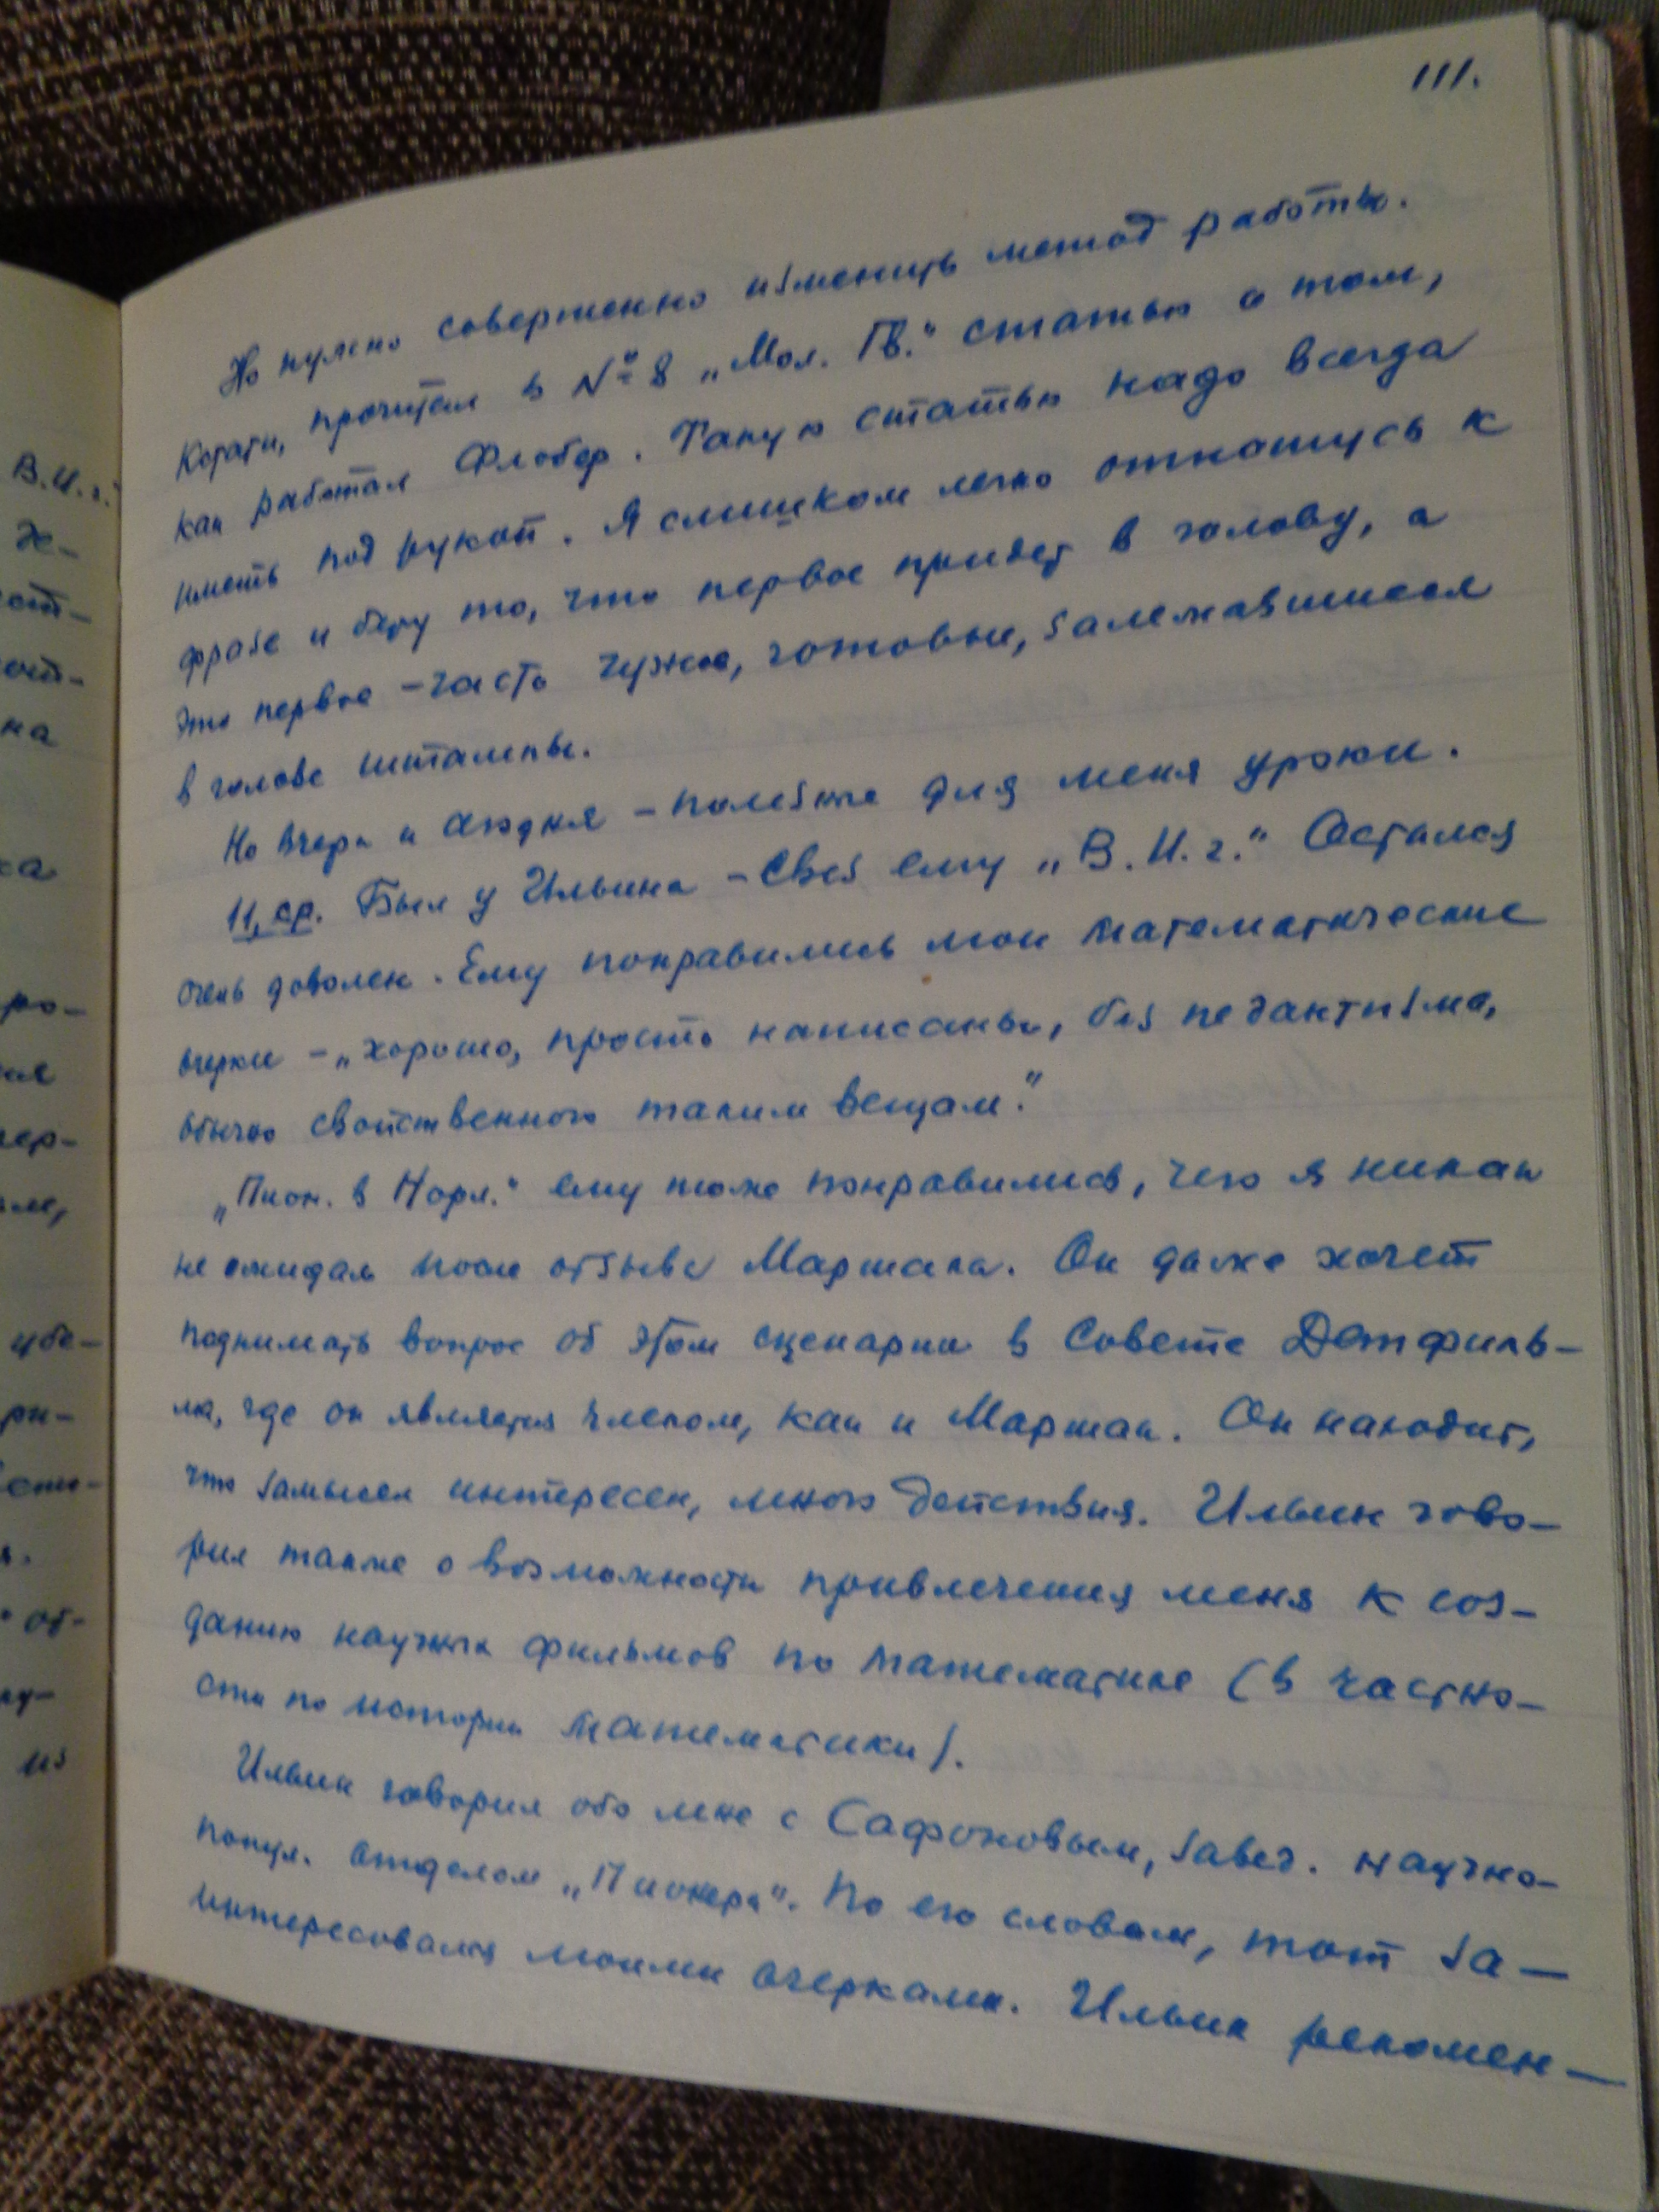 111.
Но нужно совершенно изменить метод работы.
Кстати, прочитал в № 8 „Мол. Гв.“ статью о том,
как работал Флобер. Такую статью надо всегда
иметь под рукой. Я слишком легко отношусь к
фразе и беру то, что первое придет в голову, а
это первое – часто чужие, готовые, залежавшиеся
в голове штампы.
Но вчера и сегодня – полезные для меня уроки.
11, ср. Был у Ильина – свез ему „В. И. г.“ Остался
очень доволен. Ему понравились мои математические
очерки – „хорошо, просто написаны, без педантизма,
обычно свойственного таким вещам.“
„Пион. в Норл.“ ему тоже понравились, чего я никак
не ожидал после отзыва Маршака. Он даже хочет
поднимать вопрос об этом сценарии в Совете Детфиль-
ма, где он является членом, как и Маршак. Он находит,
что замысел интересен, много действия. Ильин гово-
рил также о возможности привлечения меня к соз-
данию научных фильмов по математике (в частно-
сти по истории математики).
Ильин говорил обо мне с Сафоновым, завед. научно-
попул. отделом „Пионера“. По его словам, тот за-
интересовался моими очерками. Ильин рекомен-
В.И.г.“
Ж-
ст-
на
ка
ро-
ия
чер-
убе-
ри-
об-
из